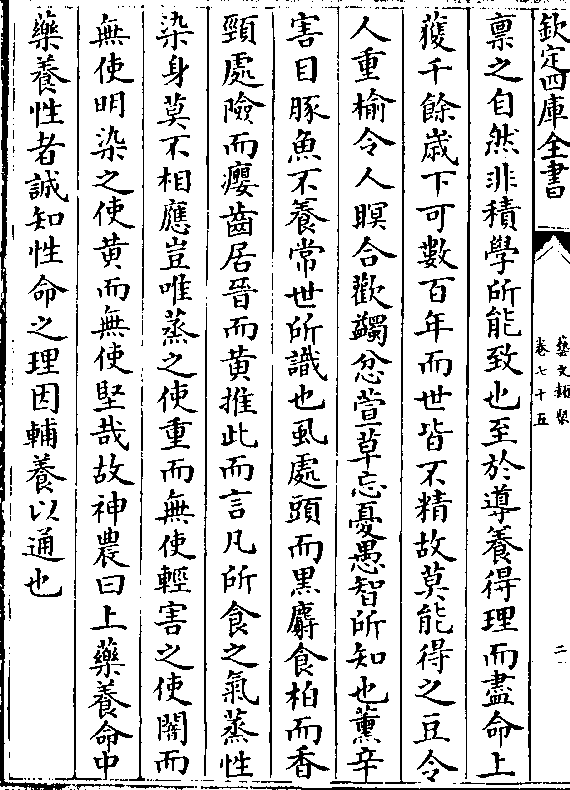 欽定四庫全書
藝文類聚
卷七十五
二
稟之自然非積學所能致也至於導養得理而盡命上
獲千餘歳下可數百年而世皆不精故莫能得之豆令
人重榆令人瞑合歡蠲忿萱草忘憂愚智所知也薰辛
害目豚魚不養常世所識也虱處頭而黒麝食柏而香
頸處險而癭齒居晉而黄推此而言凡所食之氣蒸性
染身莫不相應豈唯蒸之使重而無使輕害之使闇而
無使明染之使黄而無使堅哉故神農曰上藥養命中
藥養性者誠知性命之理因輔養以通也